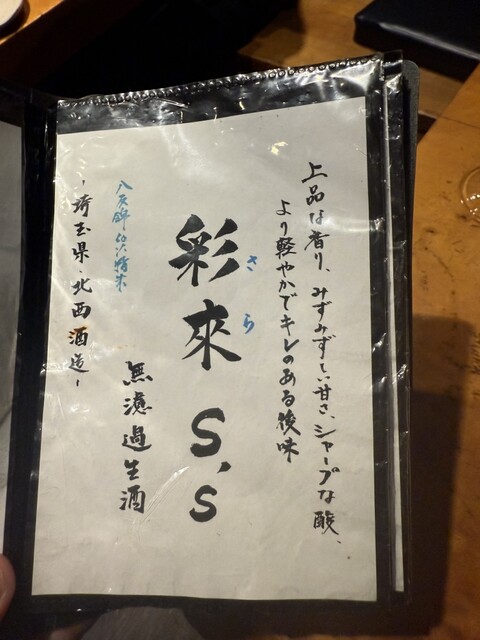 上品な香り、みずみずしい甘さ、シャープな酸、
より軽やかでキレのある後味
彩來 S,s
さら
無濾過生酒
八反錦60%精米
-埼玉県・北西酒造-